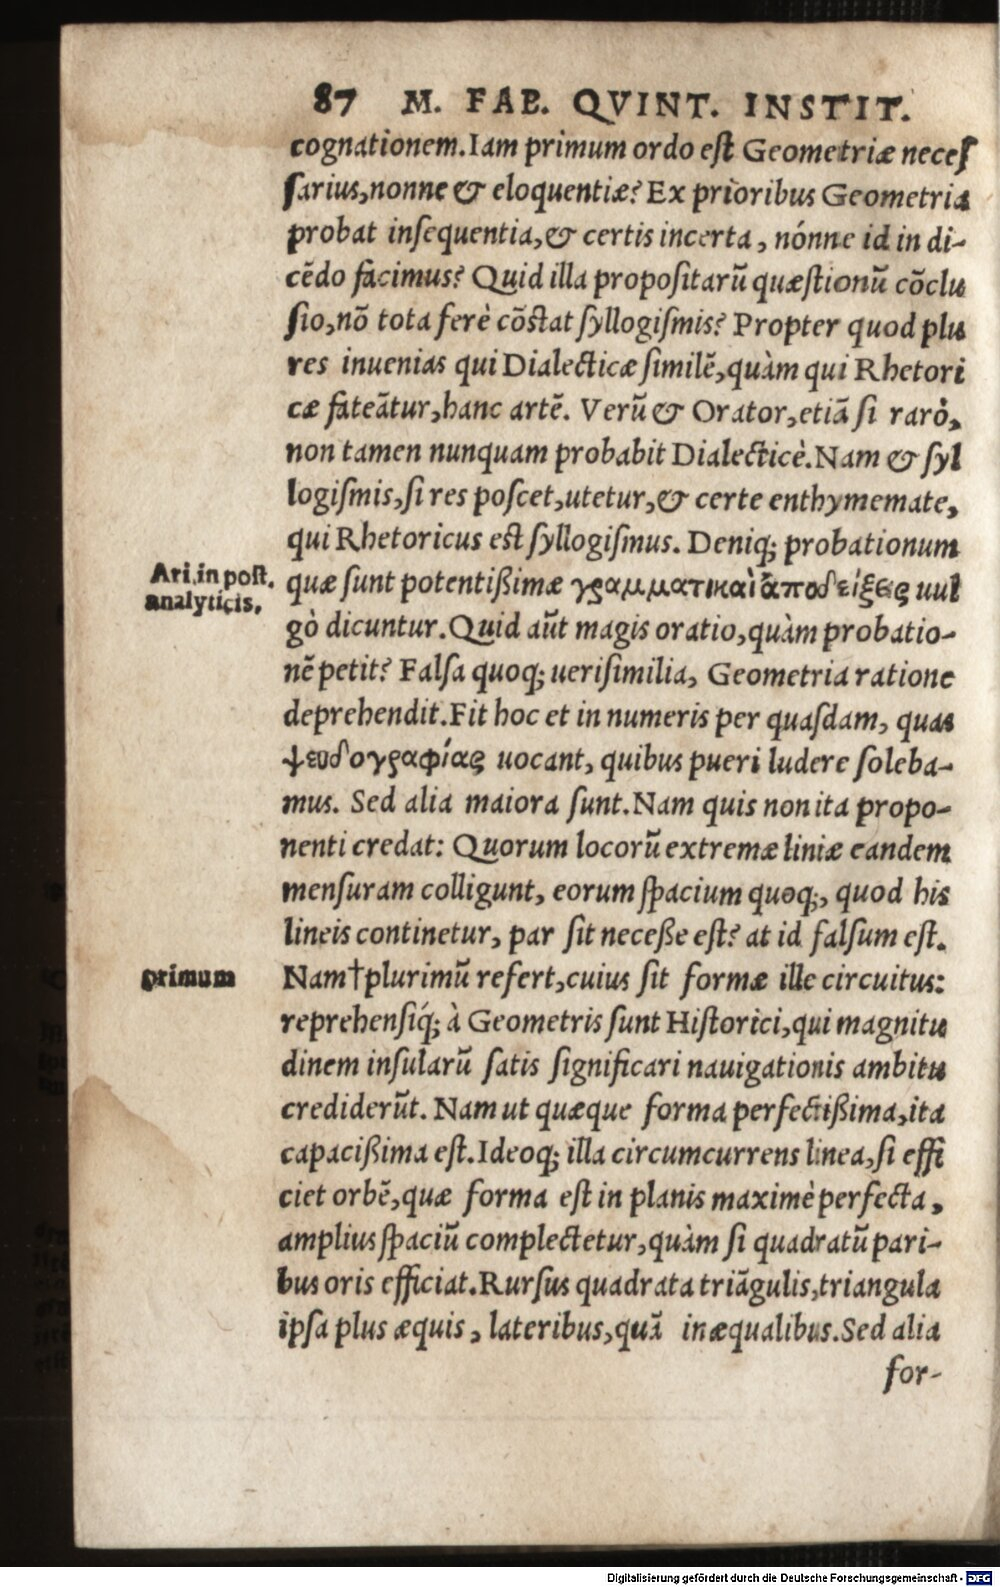 87 M. FAB. QVINT. INSTIT.
cognationem. Iam primum ordo est Geometriæ neces
sarius, nonne & eloquentiæ? Ex prioribus Geometria
probat insequentia, & certis incerta, nónne id in di-
cēdo facimus? Quid illa propositarū quæstionū cōclu
sio, nō tota ferè cōstat syllogismis? Propter quod plu
res inuenias qui Dialecticæ similē, quàm qui Rhetori
cæ fateātur, hanc artē. Verū & Orator, etiā si rarò,
non tamen nunquam probabit Dialecticè. Nam & syl
logismis, si res poscet, utetur, & certe enthymemate,
qui Rhetoricus est syllogismus. Deniq; probationum
Ari. in post.
analyticis.
quæ sunt potentißimæ γραμματικαὶ ἀποδείξεις uul
gò dicuntur. Quid aūt magis oratio, quàm probatio-
nē petit? Falsa quoq; uerisimilia, Geometria ratione
deprehendit. Fit hoc et in numeris per quasdam, quas
ψευδογραφίας uocant, quibus pueri ludere soleba-
mus. Sed alia maiora sunt. Nam quis non ita propo-
nenti credat: Quorum locorū extremæ liniæ eandem
mensuram colligunt, eorum spacium quoq;, quod his
lineis continetur, par sit necesse est? at id falsum est.
primum
Nam†plurimū refert, cuius sit formæ ille circuitus:
reprehensiq́; à Geometris sunt Historici, qui magnitu
dinem insularū satis significari nauigationis ambitu
crediderūt. Nam ut quæque forma perfectißima, ita
capacißima est. Ideoq; illa circumcurrens linea, si effi
ciet orbē, quæ forma est in planis maximè perfecta,
amplius spaciū complectetur, quàm si quadratū pari-
bus oris efficiat. Rursus quadrata triāgulis, triangula
ipsa plus æquis, lateribus, quā inæqualibus. Sed alia
for-
Digitalisierung gefördert durch die Deutsche Forschungsgemeinschaft - DFG